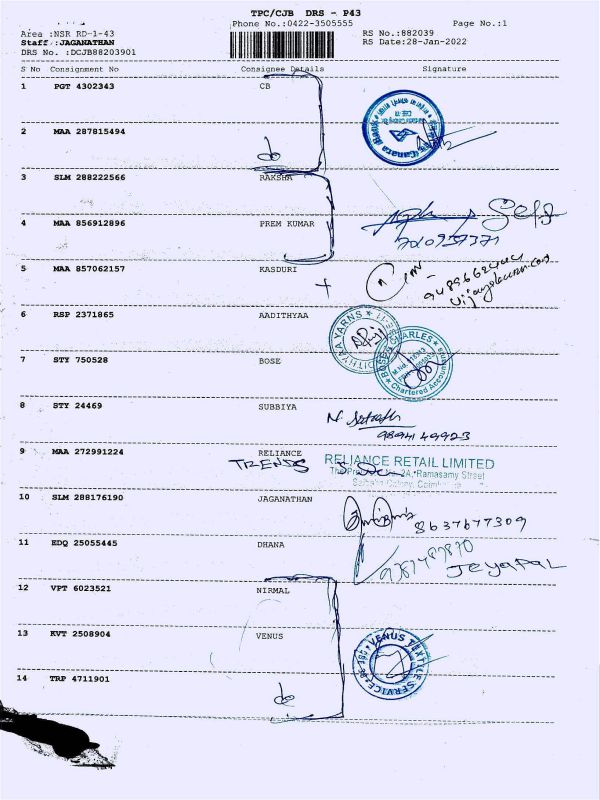 TPC/CJB DRS - P43
Phone No.:0422-3505555 Page No.:1
Area :NSR RD-1-43 RS No.:882039
Staff :JAGANATHAN RS Date:28-Jan-2022
DRS No. :DCJB88203901
S No Consignment No Consignee Details Signature
1 PGT 4302343 CB
2 MAA 287815494
Canara Bank
do
3 SLM 288222566 RAKSHA
4 MAA 856912896 PREM KUMAR
Self
5 MAA 857062157 KASDURI
6 RSP 2371865 AADITHYAA
AADITHYAA YARNS
7 STY 750528 BOSE
BOSE CHARLES
Chartered Accountants
8 STY 24469 SUBBIYA
9894149923
9 MAA 272991224 RELIANCE
TRENDS
RELIANCE RETAIL LIMITED
2A, Ramasamy Street
Saibaba Colony, Coimbatore
10 SLM 288176190 JAGANATHAN
8637677309
11 EDQ 25055445 DHANA
Jeyapal
12 VPT 6023521 NIRMAL
13 KVT 2508904 VENUS
VENUS TEXTILE SERVICE
14 TRP 4711901
do